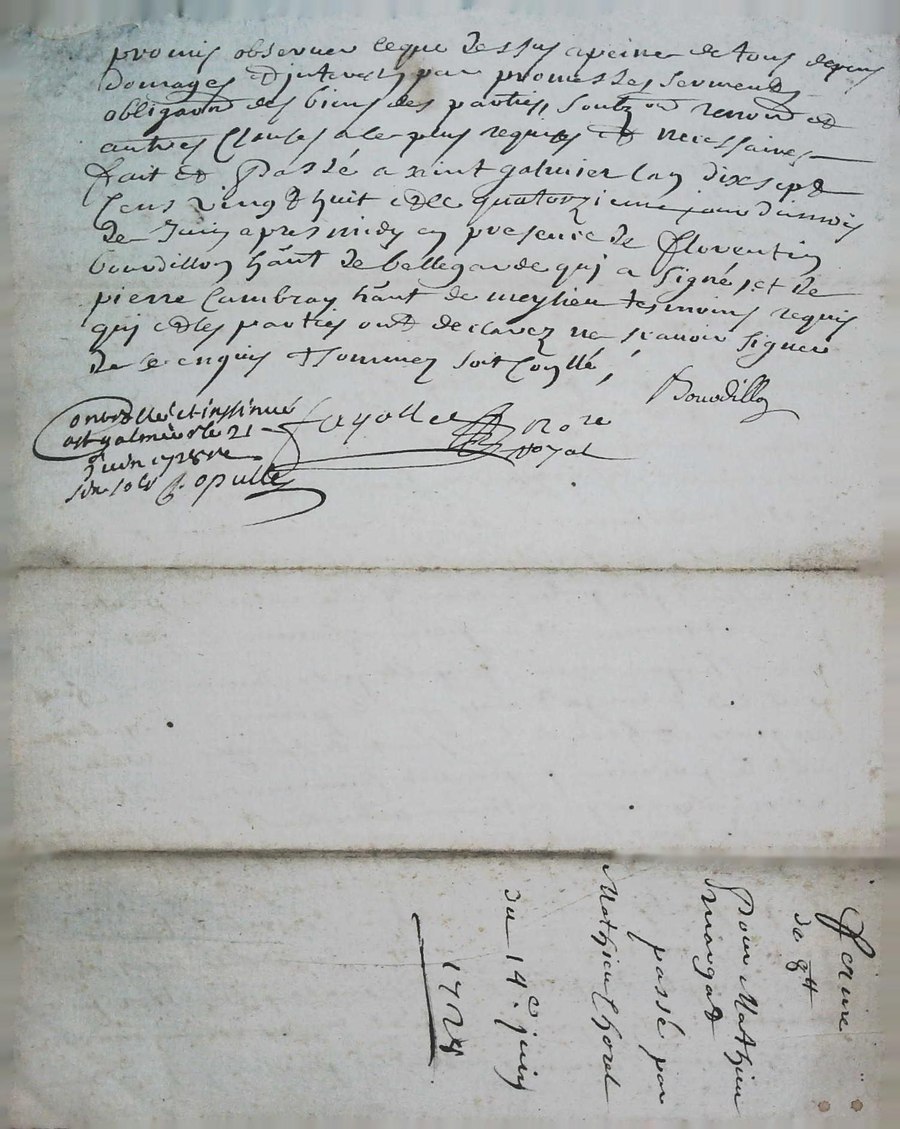 promis observer ce que dessus a peine de tous depens
domages et interests par promesses serments
obligaon des biens des parties soubz on renon et
autres clauses a ce plus requises et necessaires
fait et Passé a saint galmier lan dix sept
Cens vingt huit et le quatorzieme jour du mois
de Juin apres midy en presence de florentin
bourdillon hant de bellegarde qui a signé, et de
pierre Cambray hant de meylieu tesmoins requis
qui et les parties ont declarez ne scavoir signer
de ce enquis et sommez soit Conllé,
Bourdillon
Fayolle Nore
Royal
controllé et insinué
a st galmier le 21
Juin 1728
six sols
ferme
de 8
Pour Mathieu
passé par
Mathieu Thorel
du 14e juin
1728